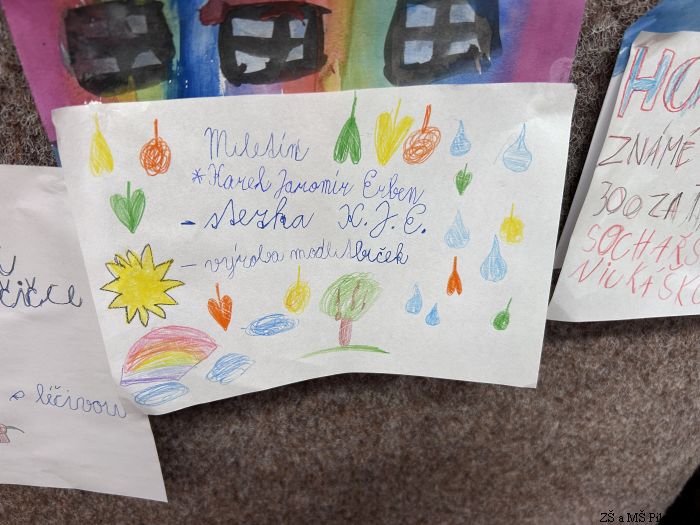 Miletín
*Karel Jaromír Erben
- stezka K. J. E.
- výroba modlitbiček
čičce
s léčivou
HO
ZNÁME
300 ZA
SOCHAŘS
ZŠ a MŠ Pil